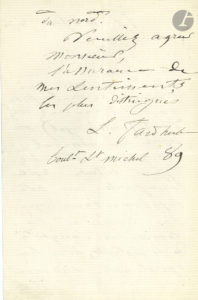 du nord.
Veuillez agréer
Monsieur,
l'assurance de
mes sentiments
les plus distingués
L.
boul<sup>t</sup> St michel 89